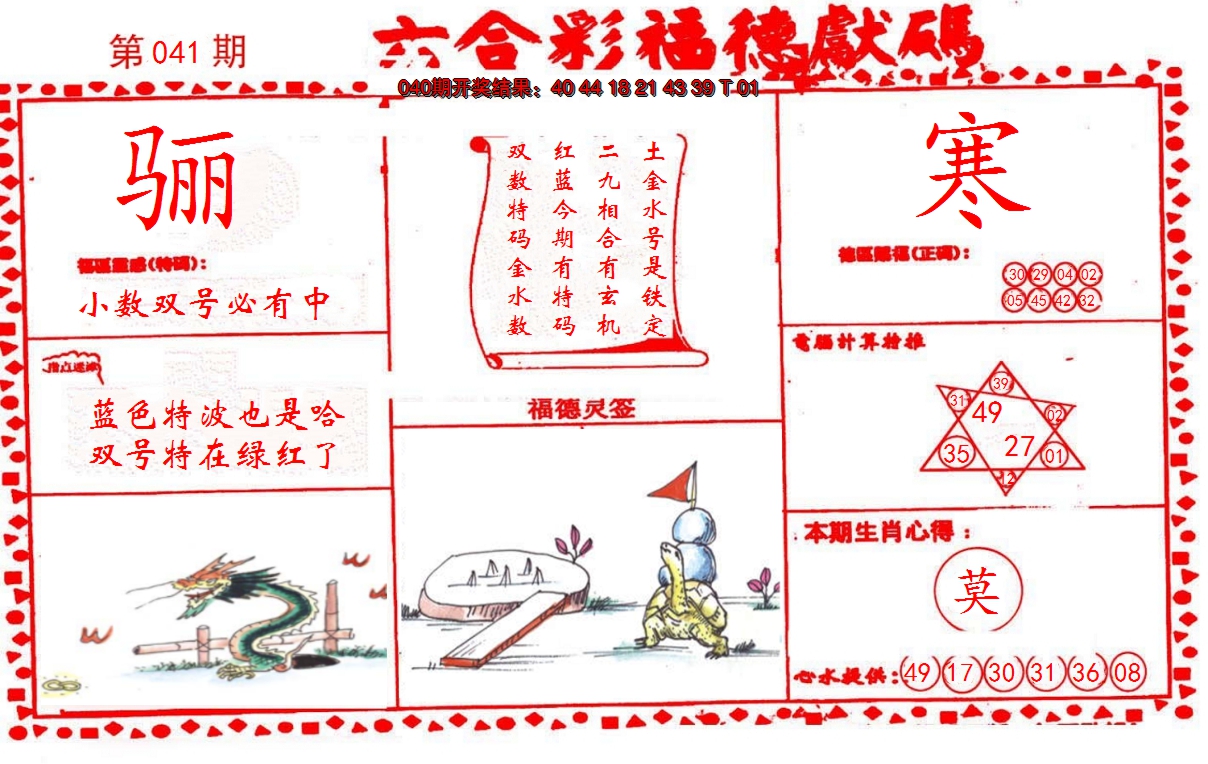 第 041 期
六合彩福德獻碼
040期开奖结果：40 44 18 21 43 39 T 01
骊
福區靈感(特碼)：
小数双号必有中
指点迷津
蓝色特波也是哈
双号特在绿红了
土金水号是铁定
二九相合有玄机
红蓝今期有特码
双数特码金水数
福德灵签
寒
德區賜福(正碼)：
30 29 04 02
05 45 42 32
電腦計算推
39
31 49 02
35 27 01
12
本期生肖心得：
莫
心水提供：49 17 30 31 36 08